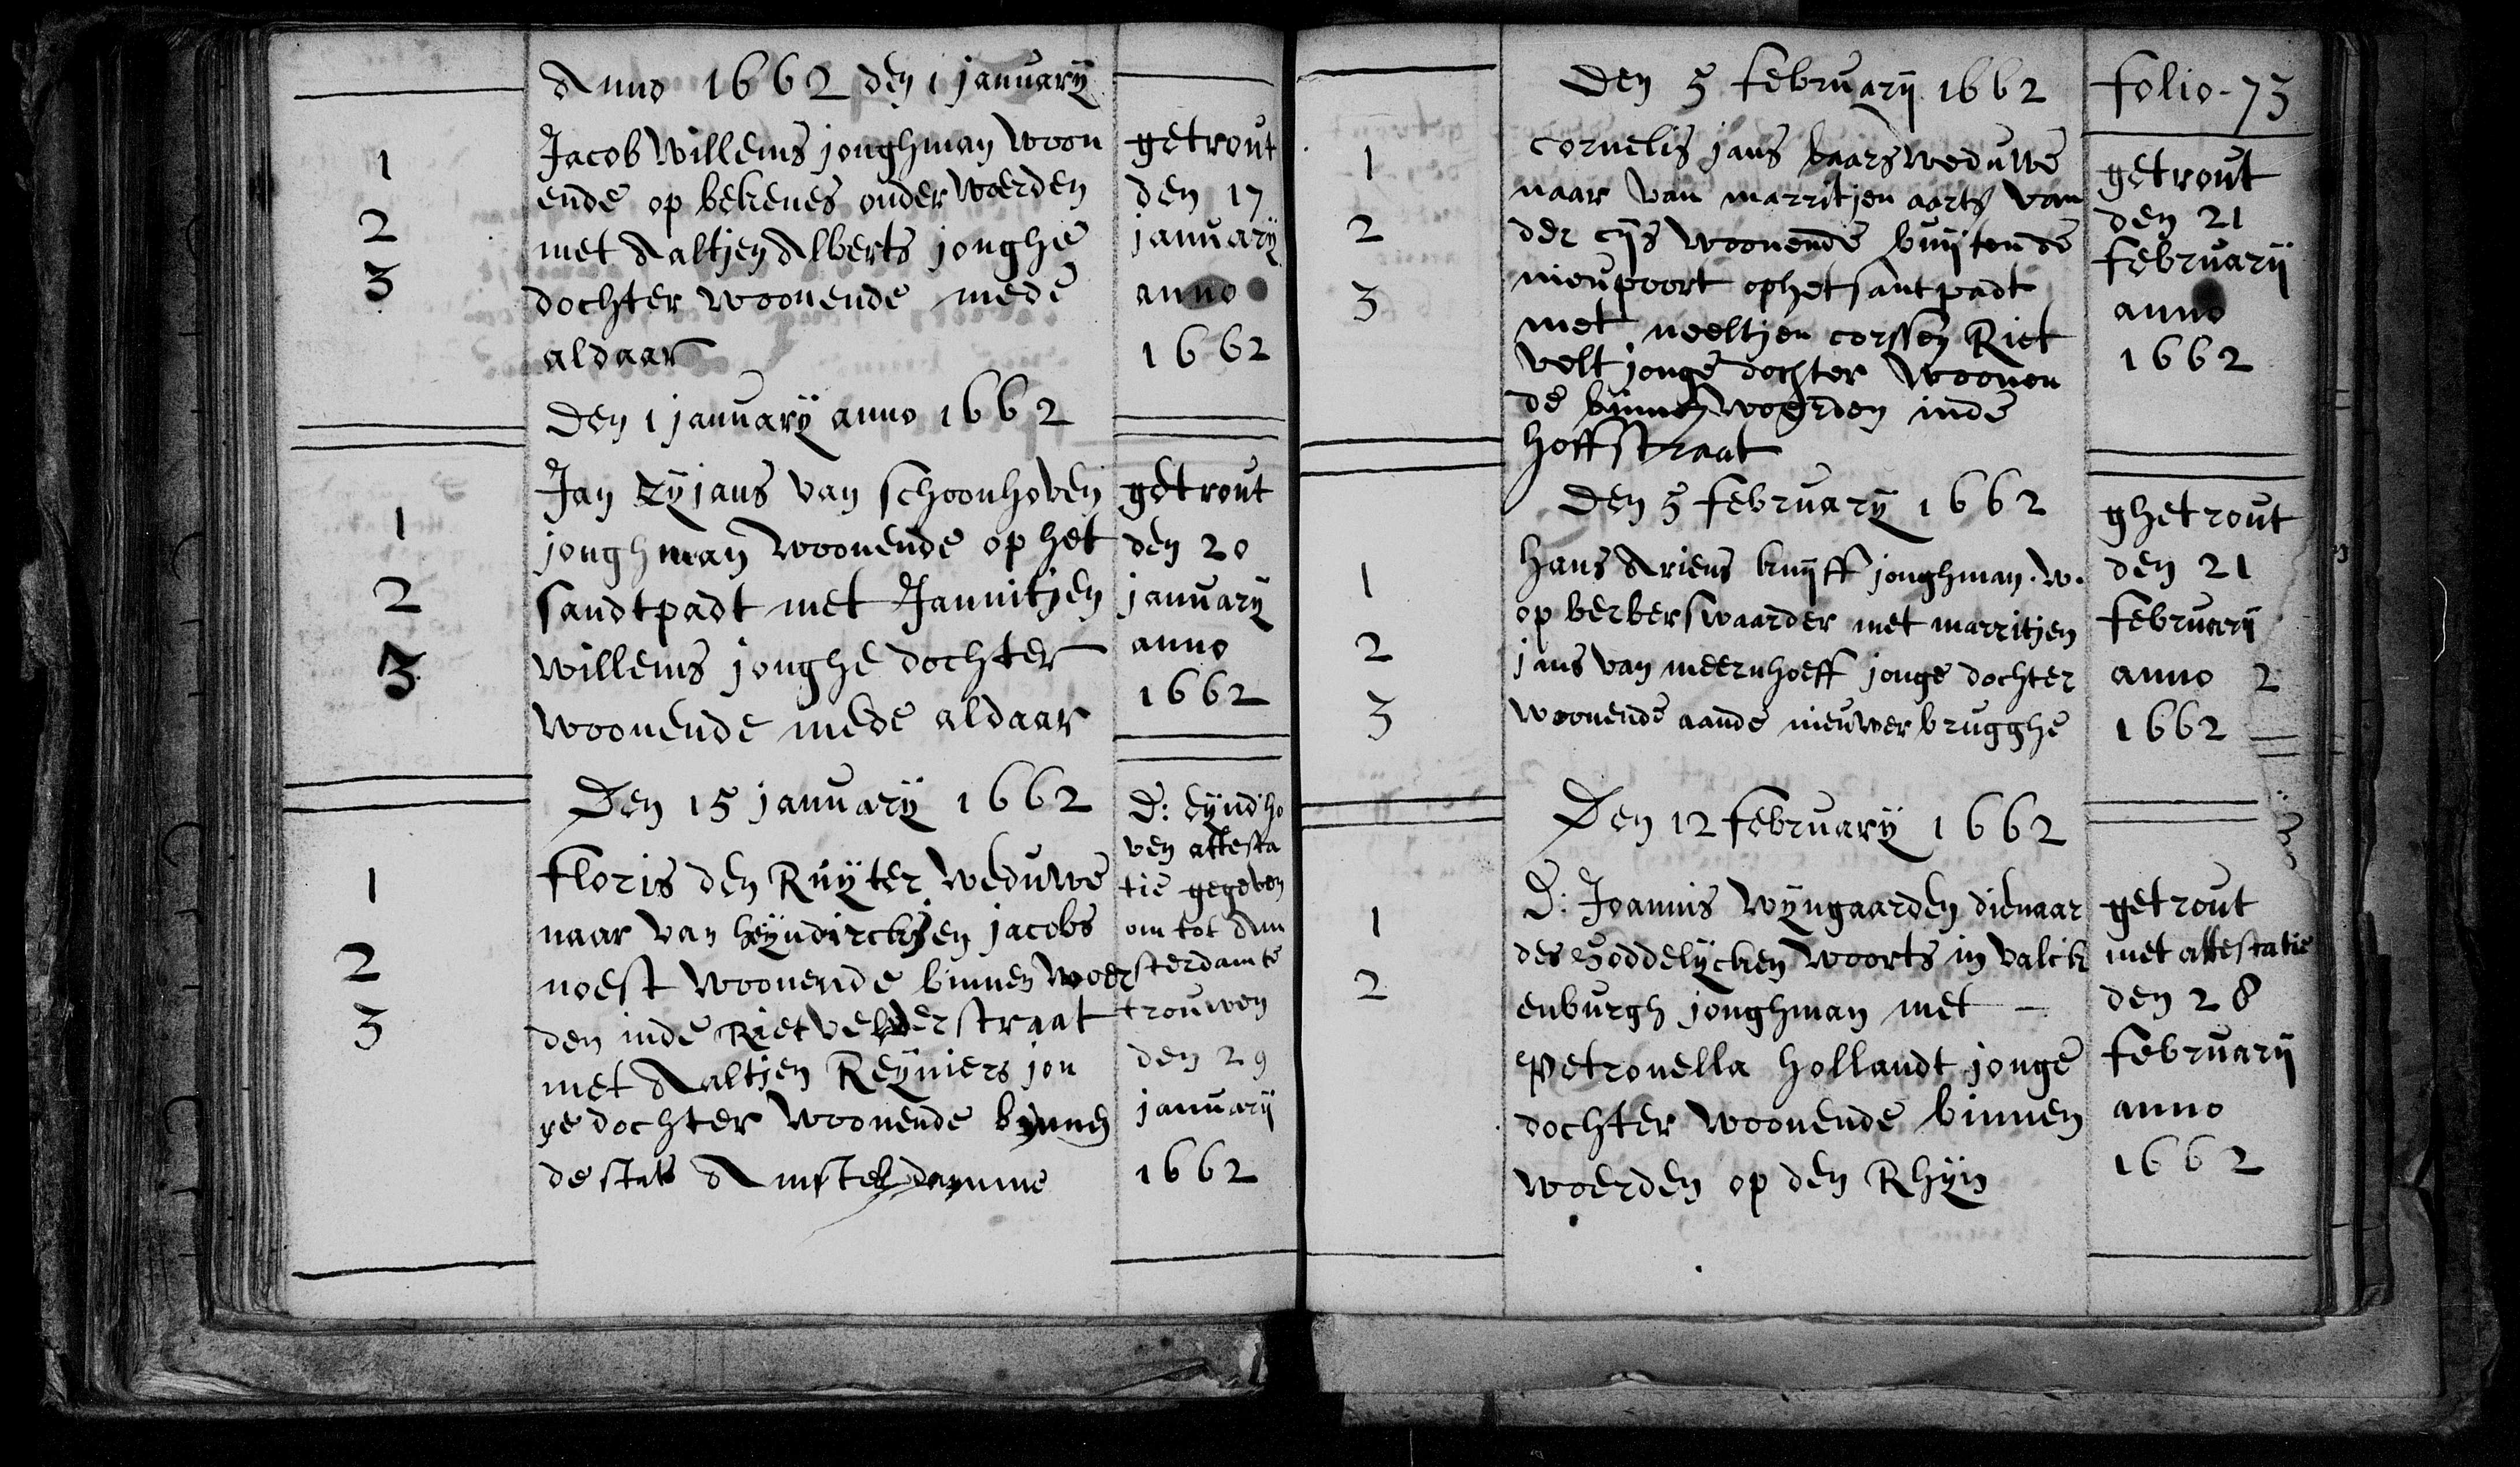 Anno 1662 den 1 januarÿ
1
2
3
Jacob Willems jonghman woon
ende op bekenes onder woerden
met Aaltjen Alberts jonghe
dochter woonende mede
aldaar
getrout
den 17
januarÿ
anno
1662
Den 1 januarÿ anno 1662
1
2
3
Jan Tÿjans van schoonhoven
jonghman woonende op het
sandtpadt met Jannitjen
willems jonghe dochter
woonende mede aldaar
getrout
den 20
januarÿ
anno
1662
Den 15 januarÿ 1662
1
2
3
Floris den Ruÿter weduwe
naar van heÿndirckjen jacobs
noest woonende binnen woer
den inde Rietvelderstraat
met Aaltjen Reÿniers jon
ge dochter woonende bynnen
de stat Amsteldamme
D: Eÿndho
ven attesta
tie gegeven
om tot Am
sterdam te
trouwen
den 29
januarÿ
1662
folio - 73
Den 5 februarÿ 1662
1
2
3
cornelis jans baars weduwe
naar van marritjen aarts van
der cÿs woonende buÿten de
nieupoort op het santpadt
met neeltjen corssen Riet
velt jonge dochter woonen
de binnen woerden inde
hoffstraat
getrout
den 21
februarÿ
anno
1662
Den 5 februarÿ 1662
1
2
3
hans Ariens knÿff jonghman . w .
op berberswaarder met marritjen
jans van meernhoeff jonge dochter
woonende aande nieuwerbrugghe
ghetrout
den 21
februarÿ
anno 2
1662
Den 12 februarÿ 1662
1
2
D: Joannis Wÿngaarden dienaar
des Goddelÿcken woorts in valck
enburgh jonghman met —
Petronella hollandt jonge
dochter woonende binnen
woerden op den Rhÿn
getrout
met attestatie
den 28
februarÿ
anno
1662